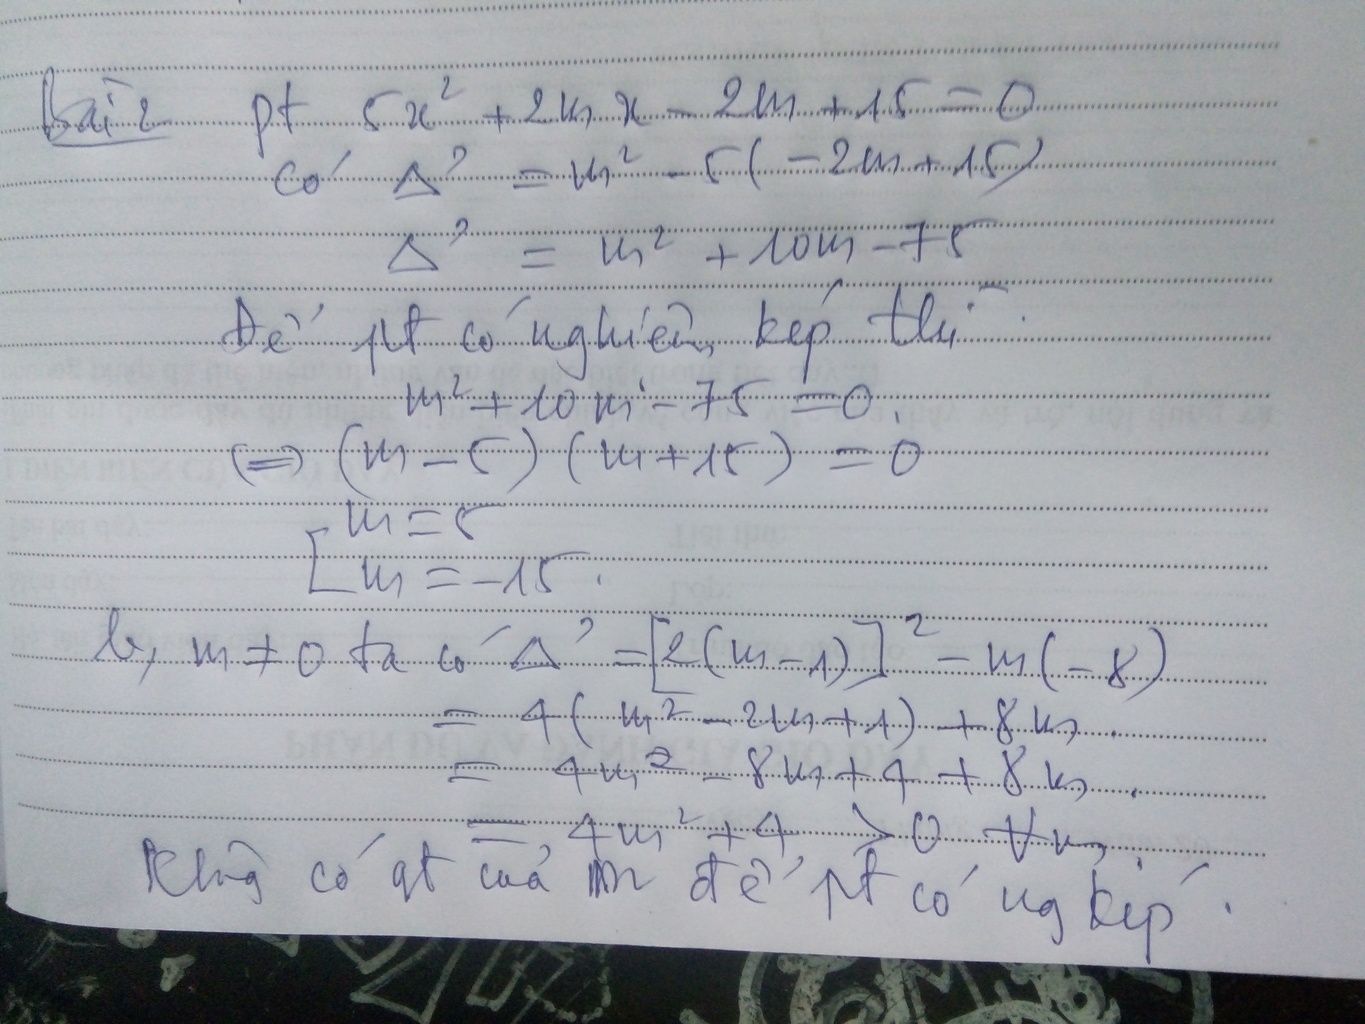 bài 2 pt 5x² + 2mx - 2m + 15 = 0
có Δ' = m² - 5(-2m + 15)
Δ' = m² + 10m - 75
Để pt có nghiệm kép thì
m² + 10m - 75 = 0
⇔ (m - 5)(m + 15) = 0
[ m = 5
m = -15.
b, m ≠ 0 ta có Δ' = [2(m - 1)]² - m(-8)
= 4(m² - 2m + 1) + 8m.
= 4m² - 8m + 4 + 8m.
= 4m² + 4 > 0 ∀m
Không có gt của m để pt có ng kép.